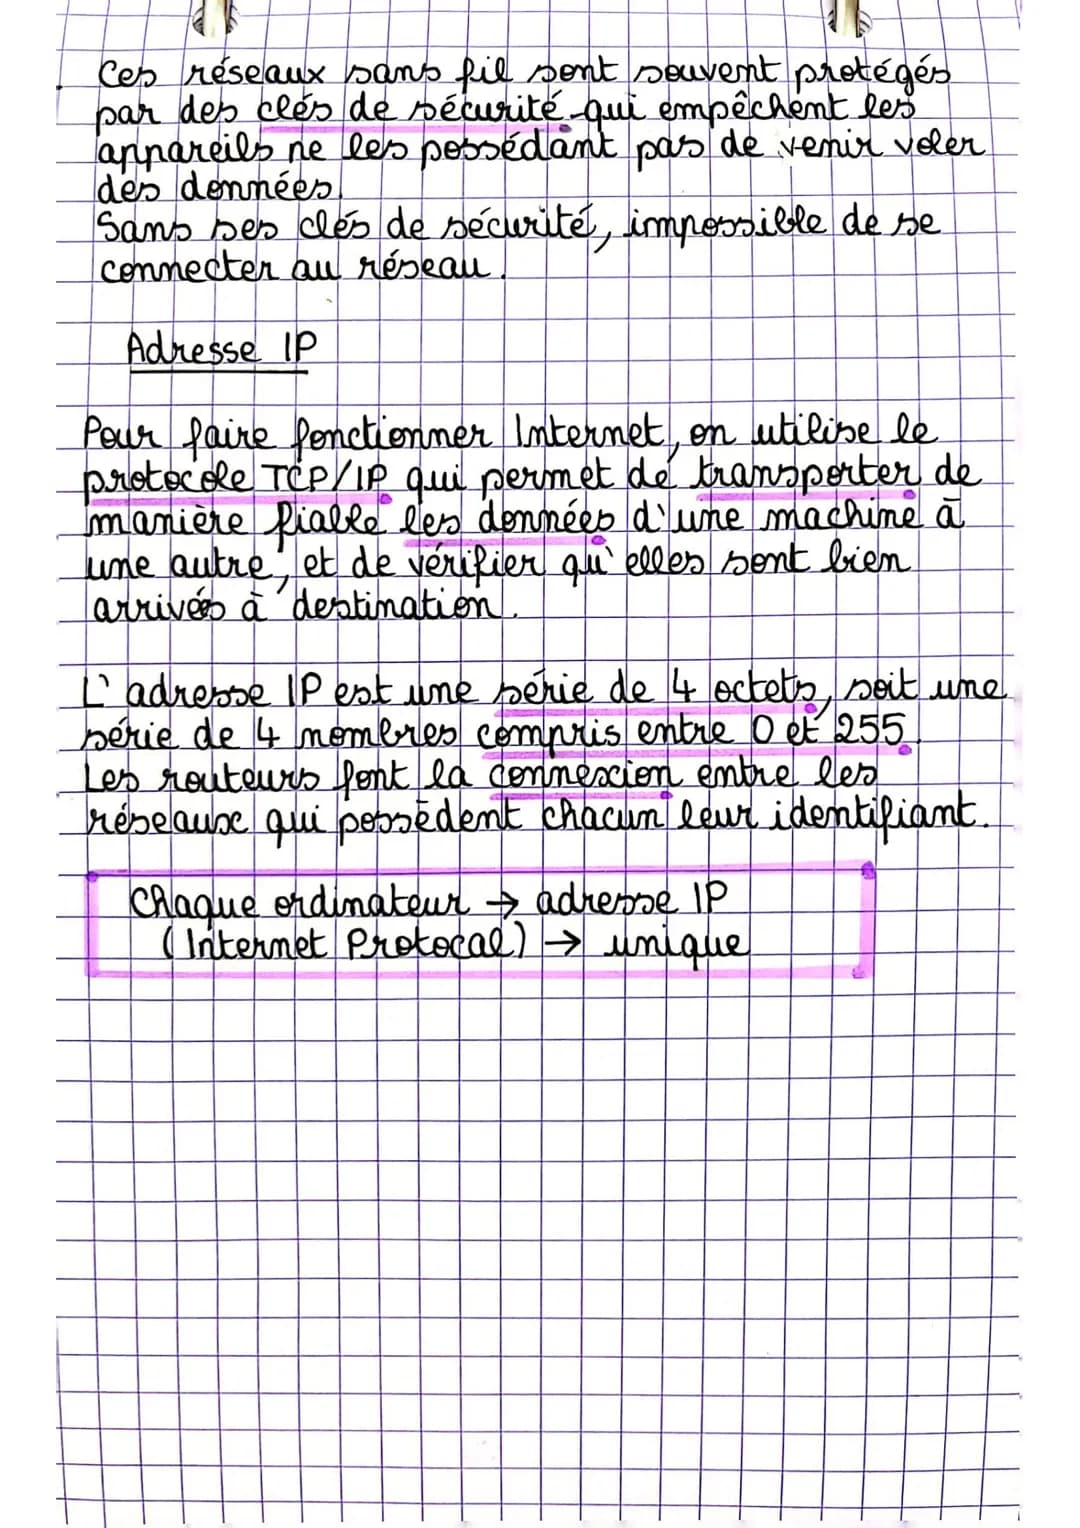 Ces réseaux sans fil sont souvent protégés
par des clés de sécurité qui empêchent les
appareils ne les possédant pas de venir voler
des données.
Sans ses clés de sécurité, impossible de se
connecter au réseau.
Adresse IP
Pour faire fonctionner Internet, on utilise le
protocole TCP/IP qui permet de transporter de
manière fiable les données d'une machine à
une autre, et de vérifier qu'elles sont bien
arrivées à destination.
L'adresse IP est une série de 4 octets, soit une
série de 4 nombres compris entre 0 et 255.
Les routeurs font la connexion entre les
réseaux qui possèdent chacun leur identifiant.
Chaque ordinateur → adresse IP
(Internet Protocal) → unique